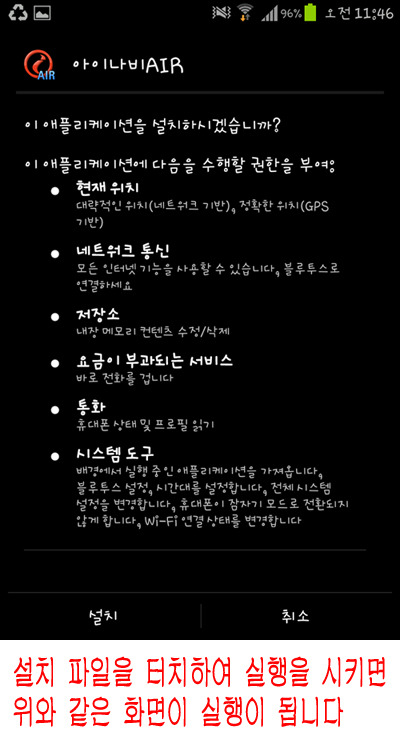 96% 오전 11:46
AIR 아이나비AIR
이 애플리케이션을 설치하시겠습니까?
이 애플리케이션에 다음을 수행할 권한을 부여:
● 현재 위치
대략적인 위치(네트워크 기반), 정확한 위치(GPS
기반)
● 네트워크 통신
모든 인터넷 기능을 사용할 수 있습니다, 블루투스로
연결하세요
● 저장소
내장 메모리 컨텐츠 수정/삭제
● 요금이 부과되는 서비스
바로 전화를 겁니다
● 통화
휴대폰 상태 및 프로필 읽기
● 시스템 도구
배경에서 실행 중인 애플리케이션을 가져옵니다,
블루투스 설정, 시간대를 설정합니다, 전체 시스템
설정을 변경합니다, 휴대폰이 잠자기 모드로 전환되지
않게 합니다, Wi-Fi 연결 상태를 변경합니다
설치 취소
설치 파일을 터치하여 실행을 시키면
위와 같은 화면이 실행이 됩니다